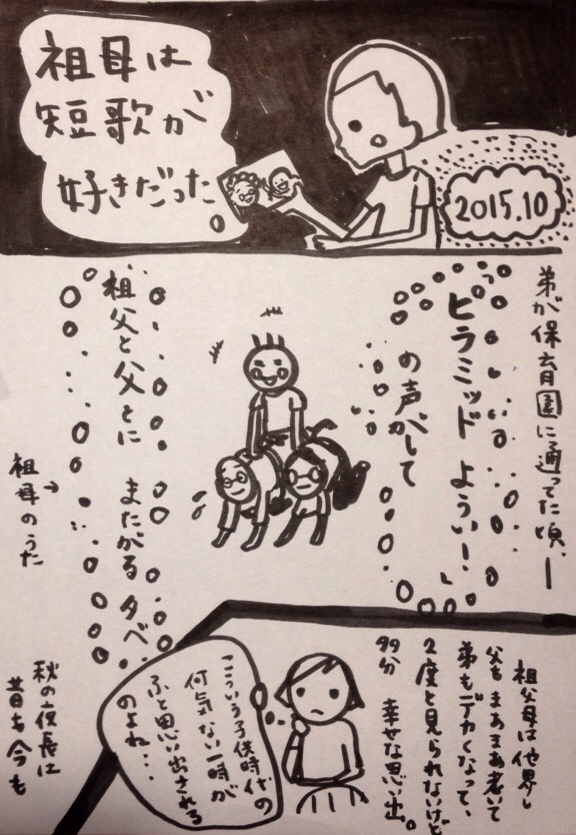 祖母は
短歌が
好きだった。
2015.10
弟が保育園に通ってた頃、ー
ピラミッド ようい!
の声がして
祖父と父とに またがる 夕べ
→祖母のうた
祖父母は他界し
父もまあまあ老いて
弟もデカくなって、
2度と見られないけど
多分 幸せな思い出。
こういう子供時代の
何気ない一時が
ふと思い出される
のよね・・・
秋の夜長は
昔も今も